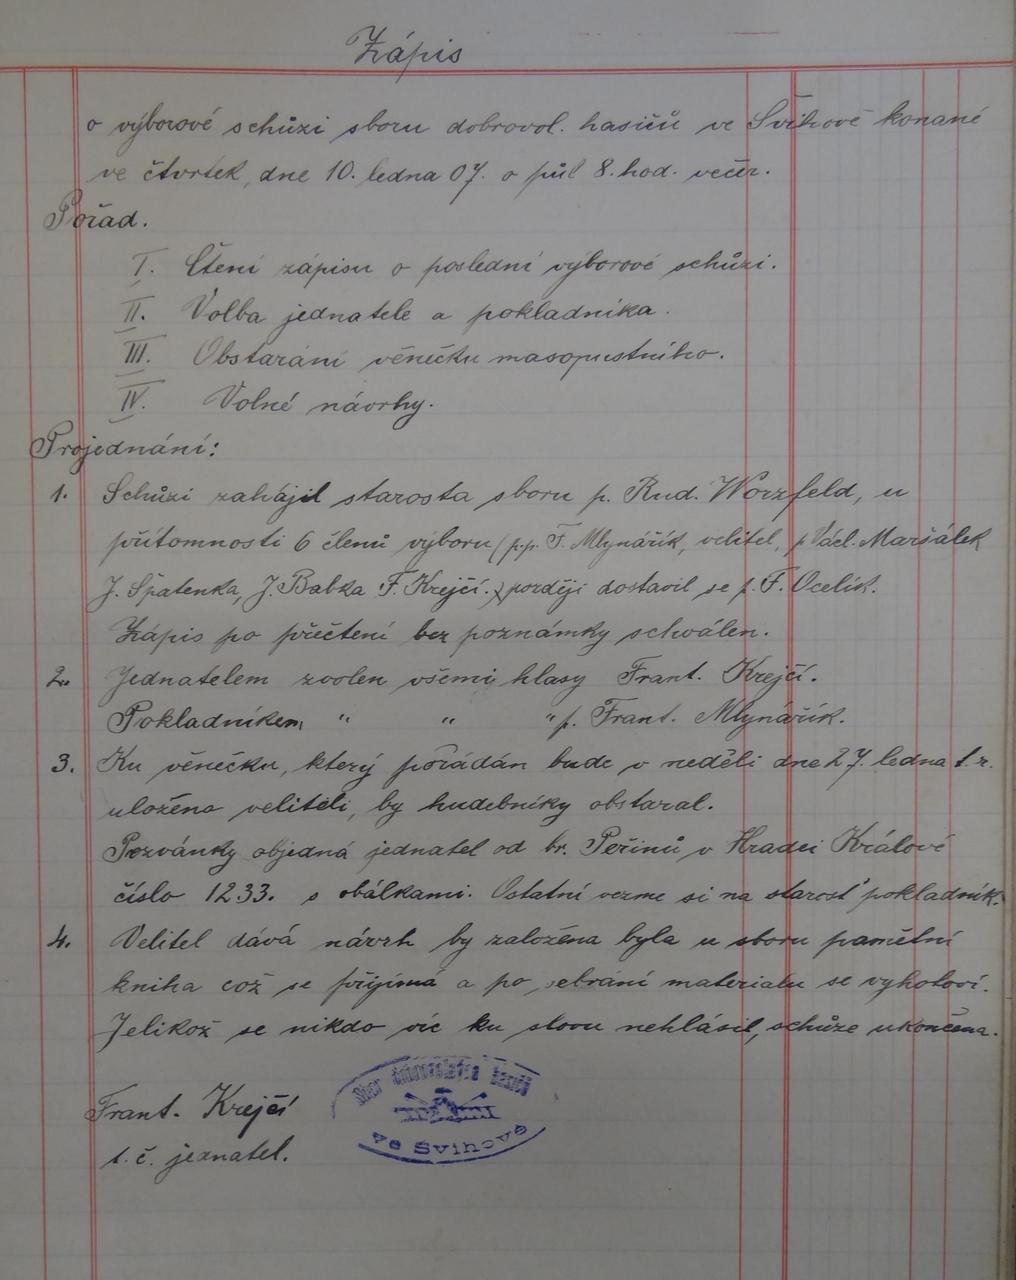 Zápis
o výborové schůzi sboru dobrovol. hasičů ve Švihově konané
ve čtvrtek, dne 10. ledna 07. o půl 8. hod. večer.
Pořad.
I. Čtení zápisu o poslední výborové schůzi.
II. Volba jednatele a pokladníka.
III. Obstarání věnečku masopustního.
IV. Volné návrhy.
Projednání:
1. Schůzi zahájil starosta sboru p. Rud. Worzfeld, u
přítomnosti 6 členů výboru (p.p. F. Mlynářík, velitel, p Václ. Maršálek
J. Špatenka, J. Babka F. Krejčí.) později dostavil se p. F. Ocelík.
Zápis po přečtení bez poznámky schválen.
2. Jednatelem zvolen všemi hlasy Frant. Krejčí.
Pokladníkem " " " p. Frant. Mlynářík.
3. Ku věnečku, který pořádán bude v neděli dne 27. ledna t. r.
uloženo veliteli, by hudebníky obstaral.
Pozvánky objedná jednatel od br. Peřinů v Hradci Králové
číslo 1233. s obálkami. Ostatní vezme si na starosť pokladník.
4. Velitel dává návrh by založena byla u sboru pamětní
kniha což se přijímá a po sebrání materialu se vyhotoví.
Jelikož se nikdo víc ku slovu nehlásil, schůze ukončena.
Sbor dobrovolných hasičů
ve Švihově
Frant. Krejčí
t. č. jednatel.